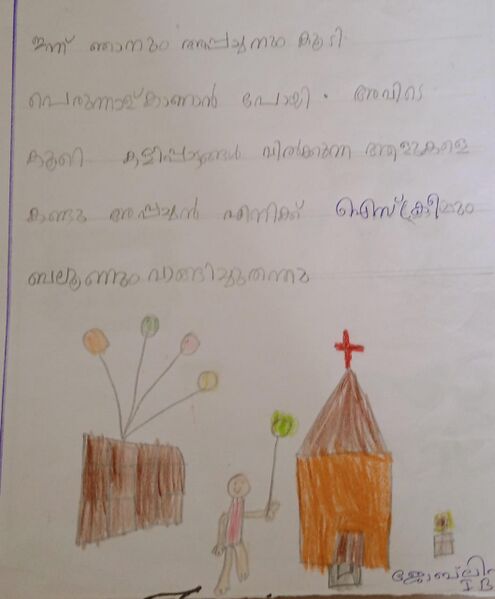 ഇന്ന് ഞാനും അപ്പച്ചനും കൂടി
പെരുന്നാള്കാണാൻ പോയി. അവിടെ
കുറെ കളിപ്പാട്ടങ്ങൾ വിൽക്കുന്ന ആളുകളെ
കണ്ടു അപ്പച്ചൻ എനിക്ക് ഐസ്ക്രീമും
ബലൂണും വാങ്ങിച്ചുതന്നു
I B